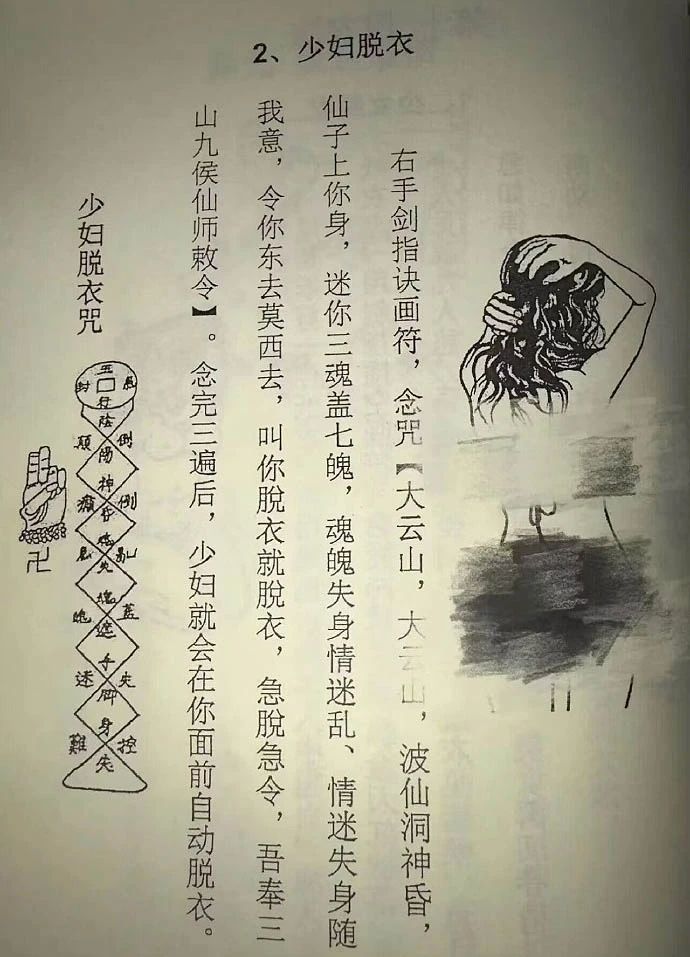 2、少妇脱衣
右手剑指诀画符，念咒【大云山，大云山，波仙洞神昏，
仙子上你身，迷你三魂盖七魄，魂魄失身情迷乱、情迷失身随
我意，令你东去莫西去，叫你脱衣就脱衣，急脱急令，吾奉三
山九侯仙师敕令】。念完三遍后，少妇就会在你面前自动脱衣。
少妇脱衣咒
封
陰
顛 倒
陽
神
倒
亂
魂
遮
手
迷 失
脚
身
難 控
失
卍